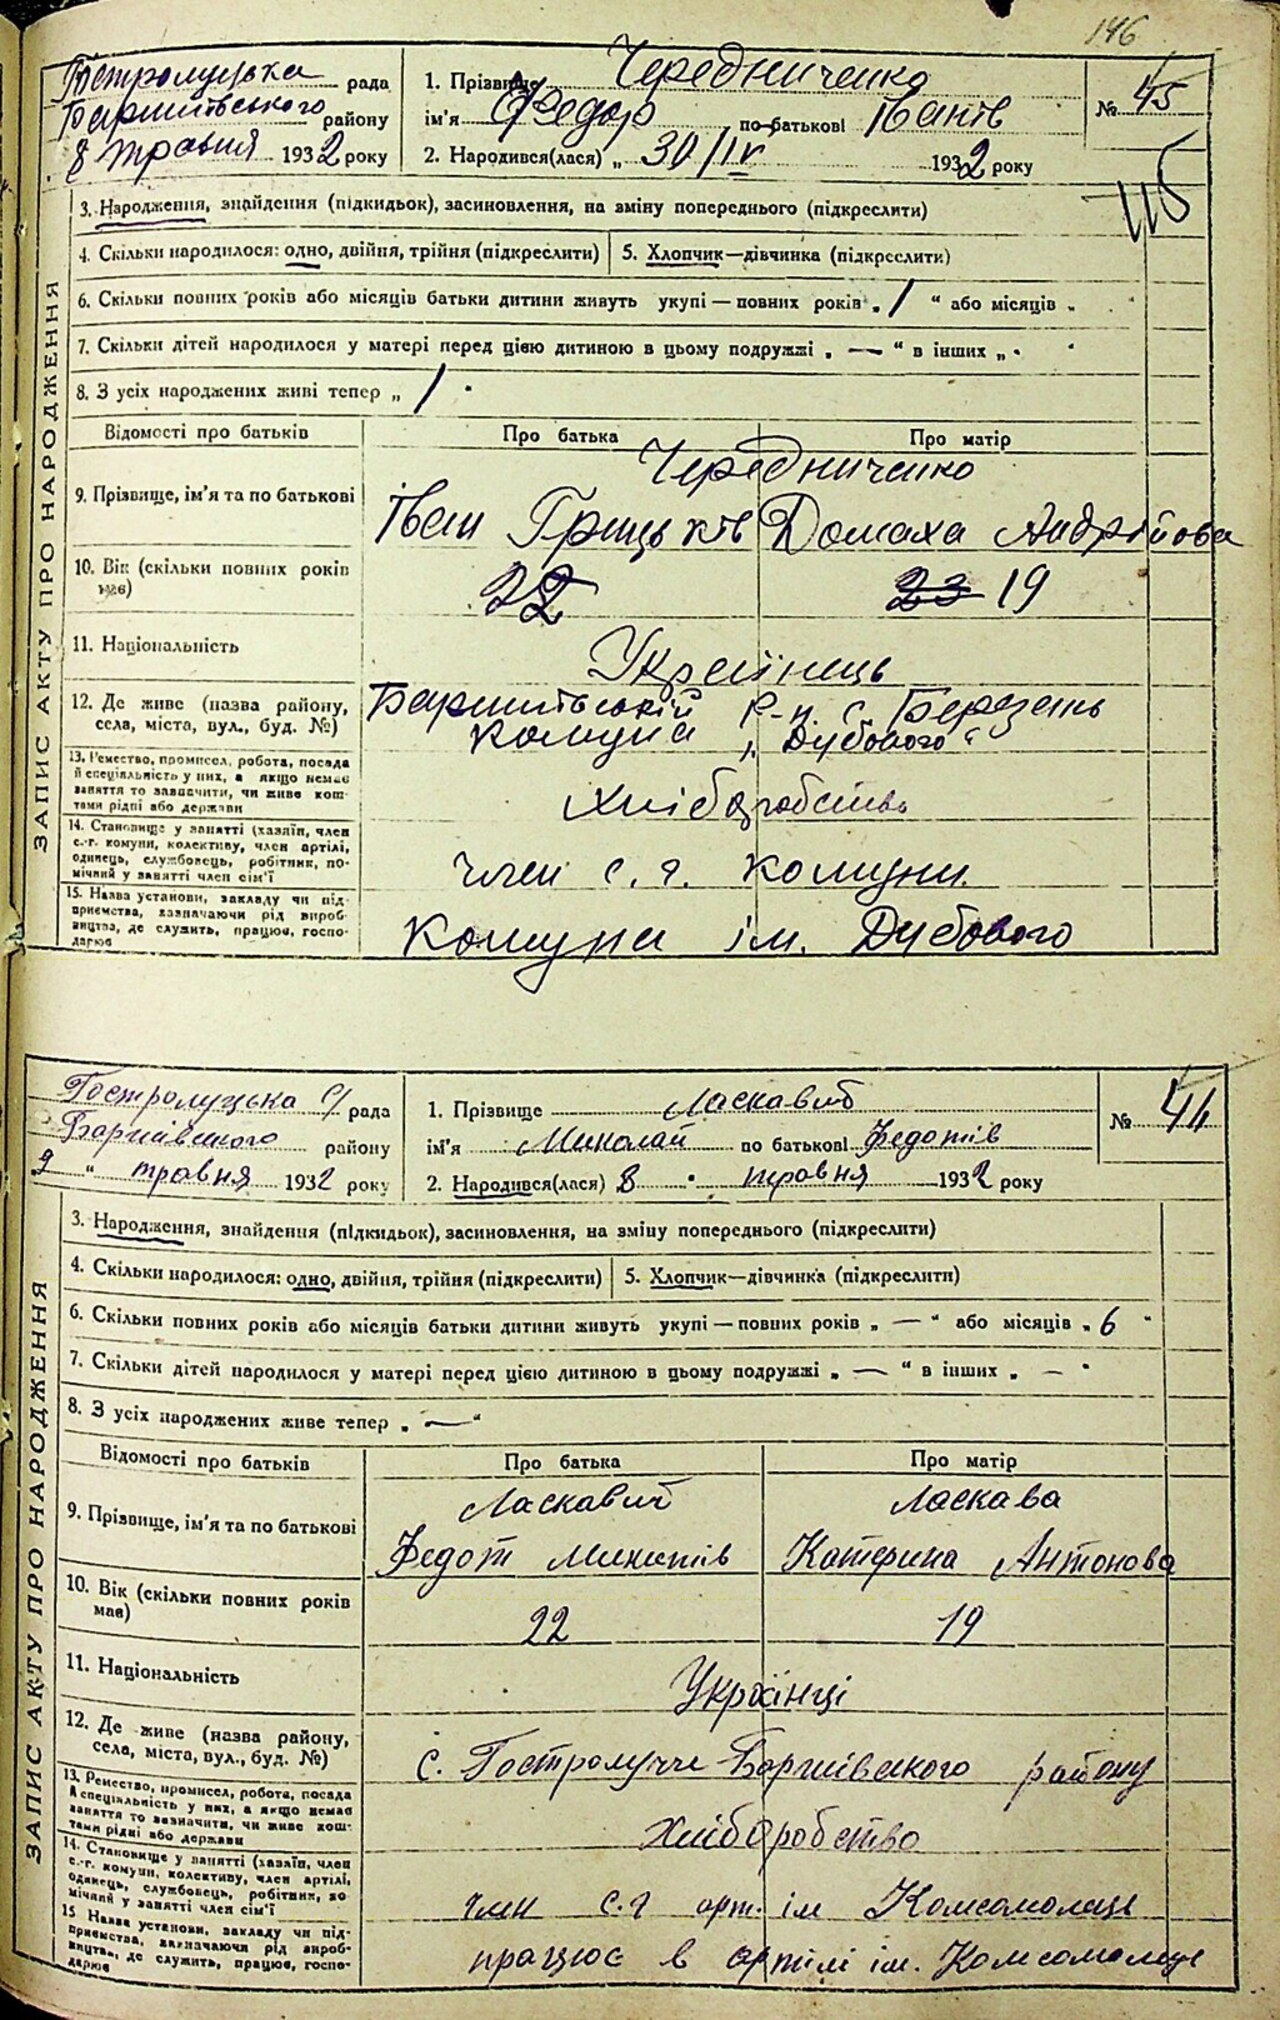 146
Гостролуцька рада
Баришівського району
8 травня 1932 року
1. Прізвище Чередниченко
ім'я Федор по-батькові Іванів
2. Народився(лася) „ 30/IV 1932 року
№ 45
115
ЗАПИС АКТУ ПРО НАРОДЖЕННЯ
3. Народження, знайдення (підкидьок), засиновлення, на зміну попереднього (підкреслити)
4. Скільки народилося: одно, двійня, трійня (підкреслити) 5. Хлопчик—дівчинка (підкреслити)
6. Скільки повних років або місяців батьки дитини живуть укупі — повних років „ 1 “ або місяців „ “
7. Скільки дітей народилося у матері перед цією дитиною в цьому подружжі „ — “ в інших „ “
8. З усіх народжених живі тепер „ 1 “
Відомості про батьків Про батька Про матір
9. Прізвище, ім'я та по батькові
Чередниченко
Іван Грицьків Домаха Андрійова
10. Вік (скільки повних років має)
22 23 19
11. Національність Українець
12. Де живе (назва району, села, міста, вул., буд. №)
Баришівський р-н. с. Березань
комуна „Дубового“
13. Ремество, промисел, робота, посада
й спеціяльність у них, а якщо немає
заняття то зазначити, чи живе кош-
тами рідні або держави
Хліборобство
14. Становище у занятті (хазяїн, член
с.-г. комуни, колективу, член артілі,
одинець, службовець, робітник, по-
мічний у занятті член сім'ї
член с. г. комуни.
15. Назва установи, закладу чи під-
приємства, зазначаючи рід вироб-
ництва, де служить, працює, госпо-
дарює
Комуна ім. Дубового
Гостролуцька с/рада
Баришівського району
9 “ травня 1932 року
1. Прізвище Ласкавий
ім'я Миколай по батькові Федотів
2. Народився(лася) 8 травня 1932 року
№ 44
ЗАПИС АКТУ ПРО НАРОДЖЕННЯ
3. Народження, знайдення (підкидьок), засиновлення, на зміну попереднього (підкреслити)
4. Скільки народилося: одно, двійня, трійня (підкреслити) 5. Хлопчик—дівчинка (підкреслити)
6. Скільки повних років або місяців батьки дитини живуть укупі — повних років „ — “ або місяців „ 6 “
7. Скільки дітей народилося у матері перед цією дитиною в цьому подружжі „ — “ в інших „ — “
8. З усіх народжених живе тепер „ — “
Відомості про батьків Про батька Про матір
9. Прізвище, ім'я та по батькові
Ласкавий Ласкава
Федот Микитів Катерина Антонова
10. Вік (скільки повних років має)
22 19
11. Національність Українці
12. Де живе (назва району, села, міста, вул., буд. №)
с. Гостролуччє Баришівського району
13. Ремество, промисел, робота, посада
й спеціяльність у них, а якщо немає
заняття то зазначити, чи живе кош-
тами рідні або держави
Хліборобство
14. Становище у занятті (хазяїн, член
с.-г. комуни, колективу, член артілі,
одинець, службовець, робітник, по-
мічний у занятті член сім'ї
член с.г арт. ім Комсомольця
15 Назва установи, закладу чи під-
приємства, зазначаючи рід вироб-
ництва, де служить, працює, госпо-
дарює
працює в артілі ім. Комсомольця